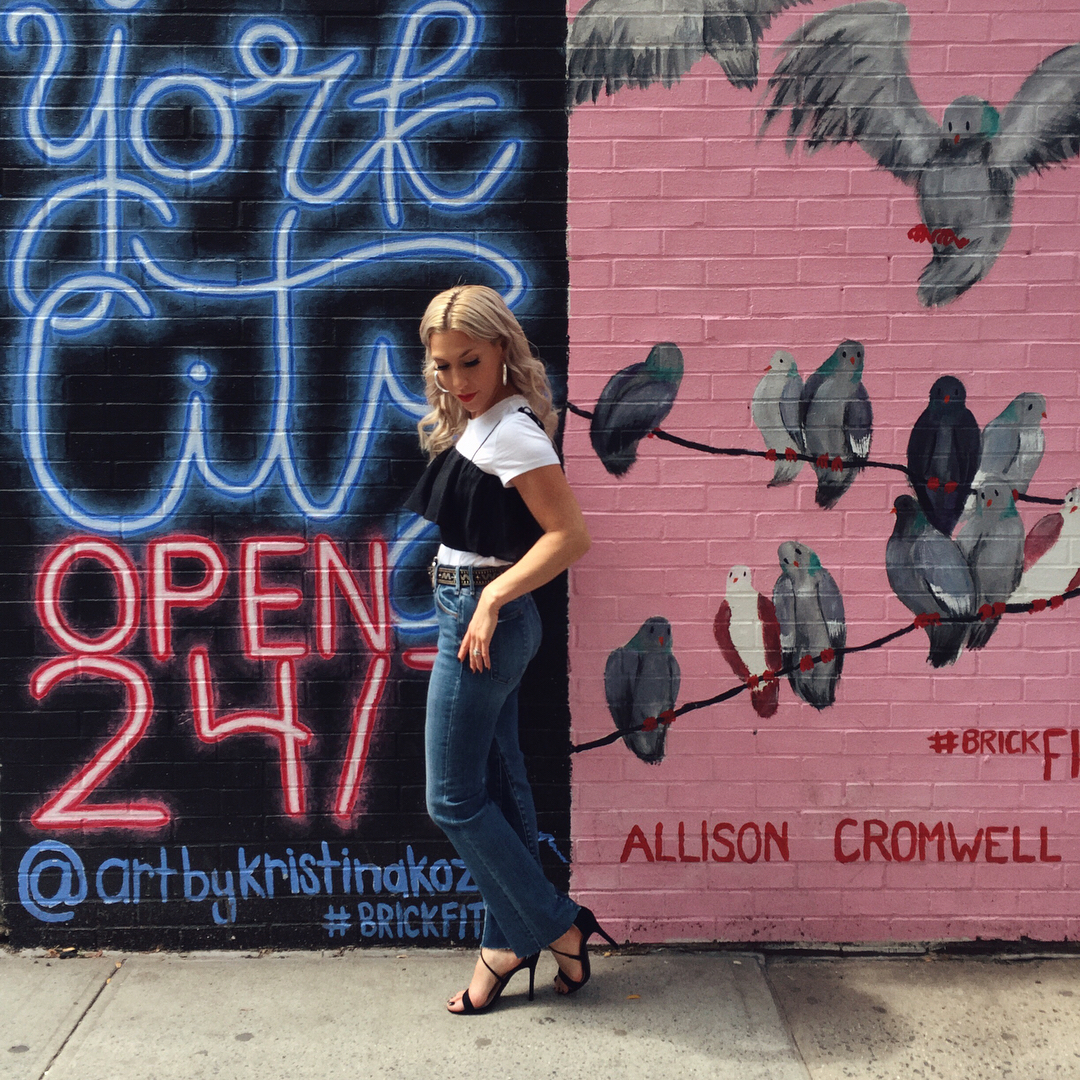 york
City
OPEN
24/
@artbykristinakoz
#BRICKFIT
#BRICKFI
ALLISON CROMWELL